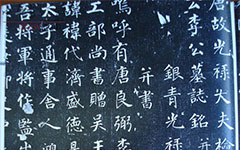 唐故光祿大夫檢
公李公墓誌銘
銀青光祿
并書
嗚呼有唐良弼李
工部尚書贈吳王
諱禕代濟盛德
太子通事舍人
吾將軍將作監